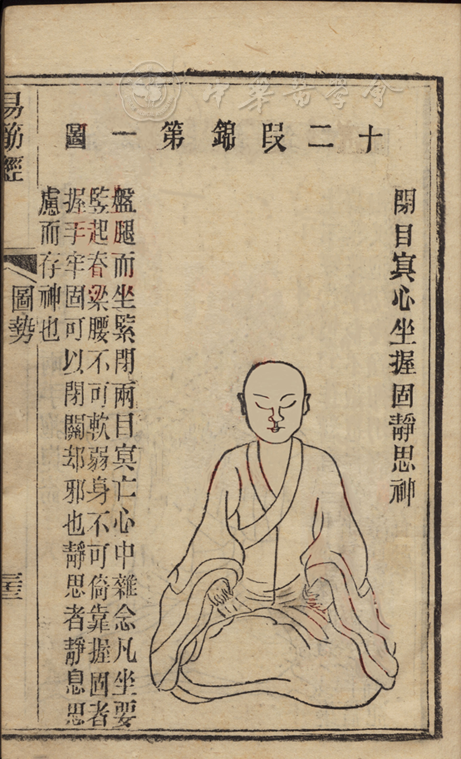 十二段錦第一圖
閉目冥心坐握固靜思神
盤腿而坐緊閉兩目冥亡心中雜念凡坐要
竪起脊梁腰不可軟弱身不可倚靠握固者
握手牢固可以閉關却邪也靜思者靜息思
慮而存神也
易筋經
圖勢
中華醫學會